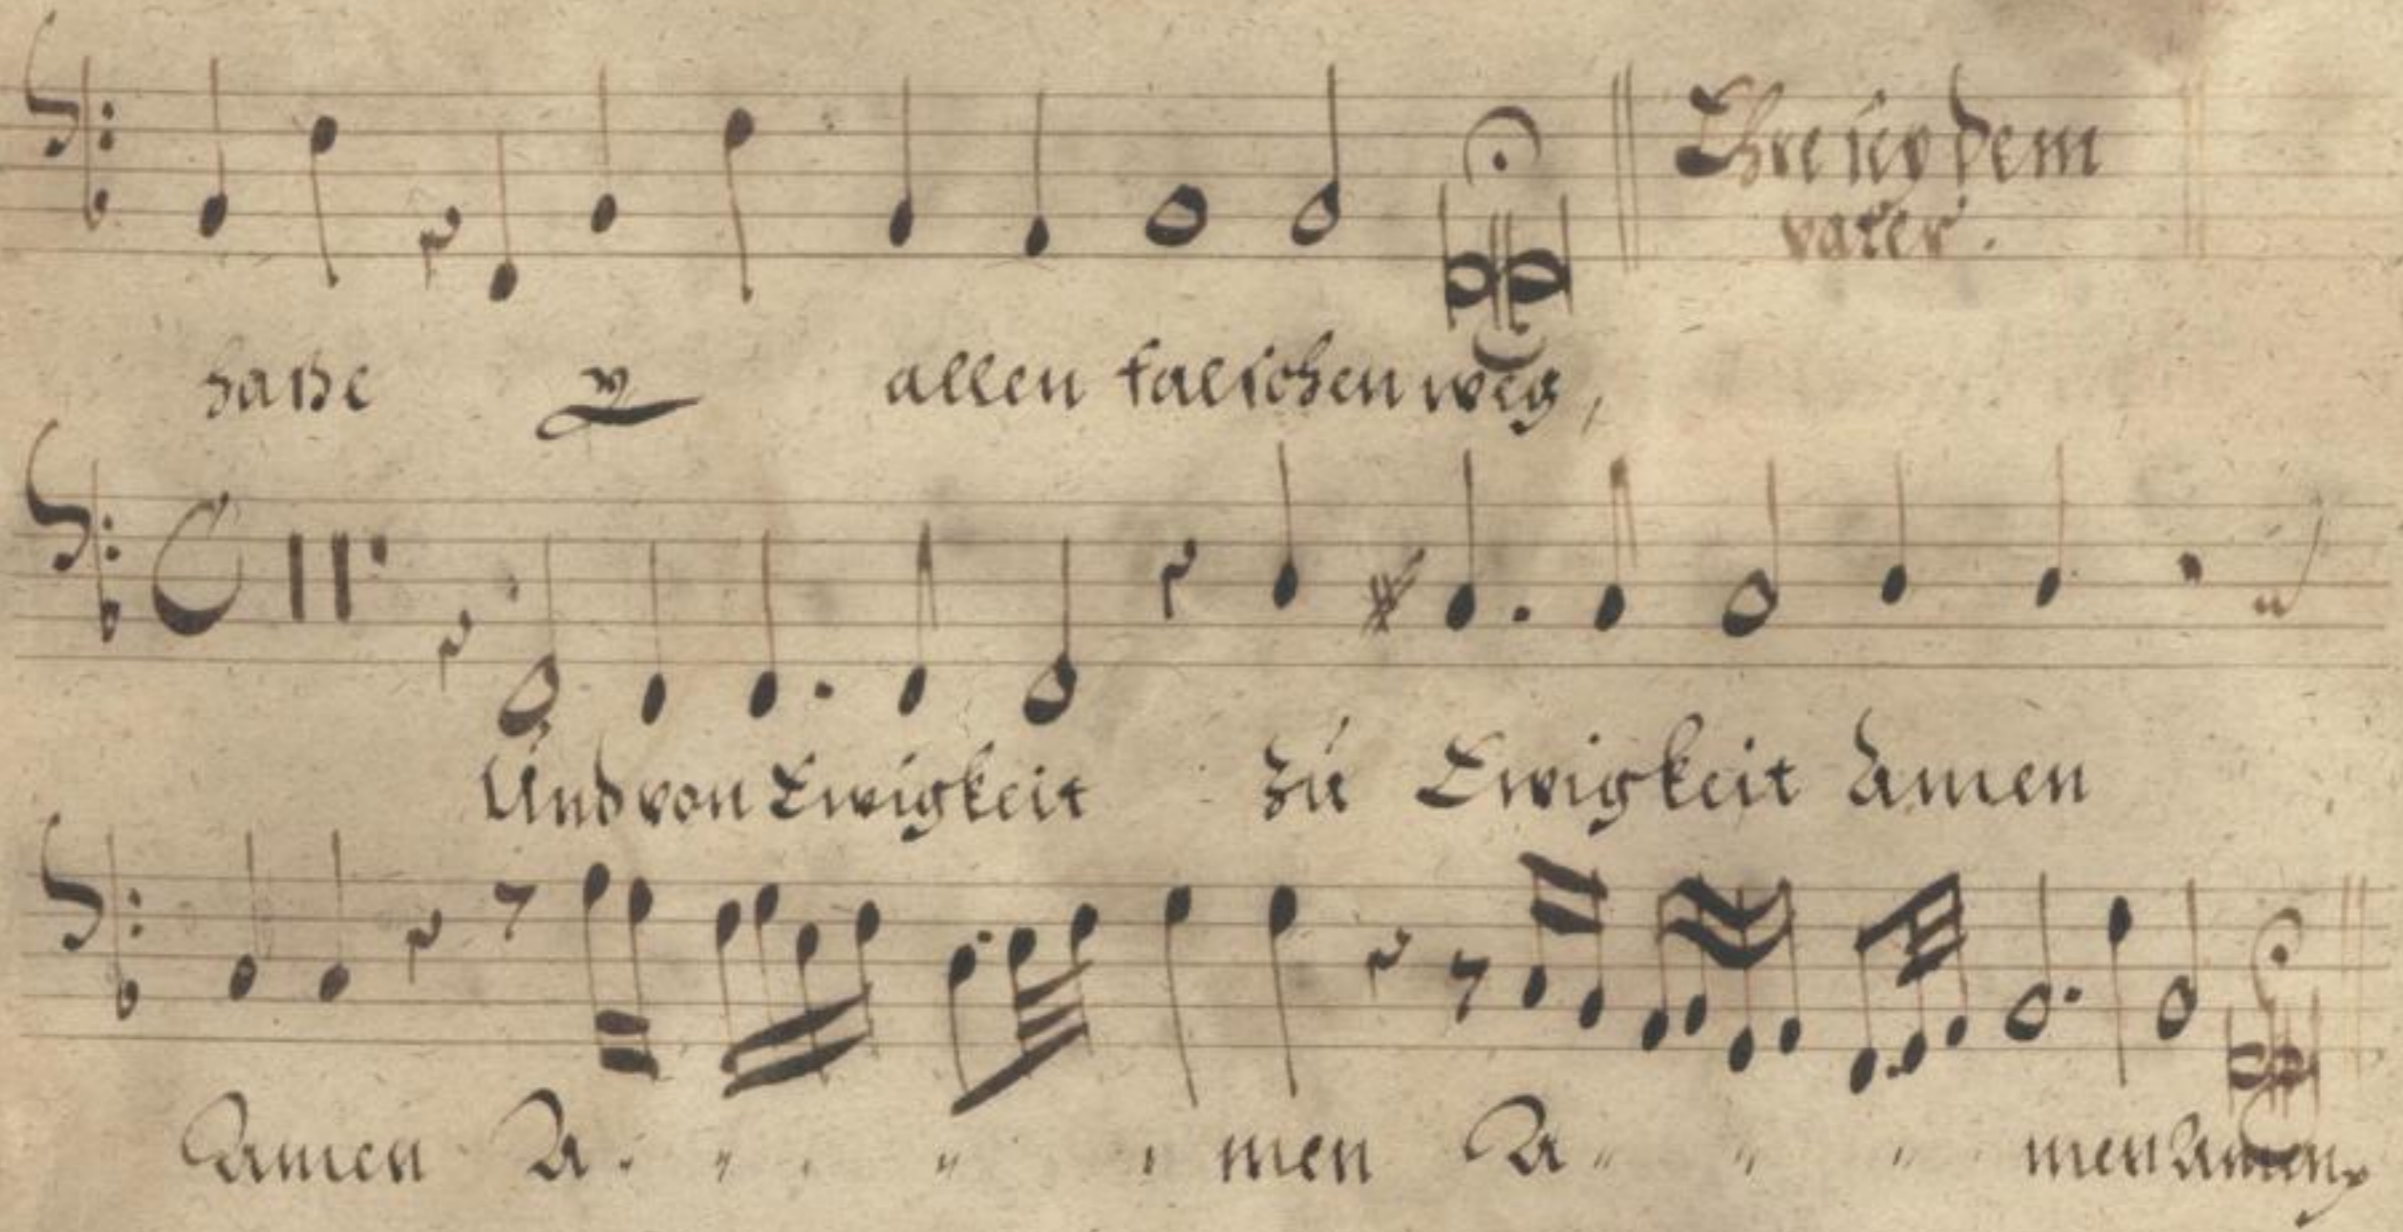 Ehre seÿ dem
vater.
haße allen falschen weg,
Und von Ewigkeit zu Ewigkeit Amen
Amen A men A men Amen